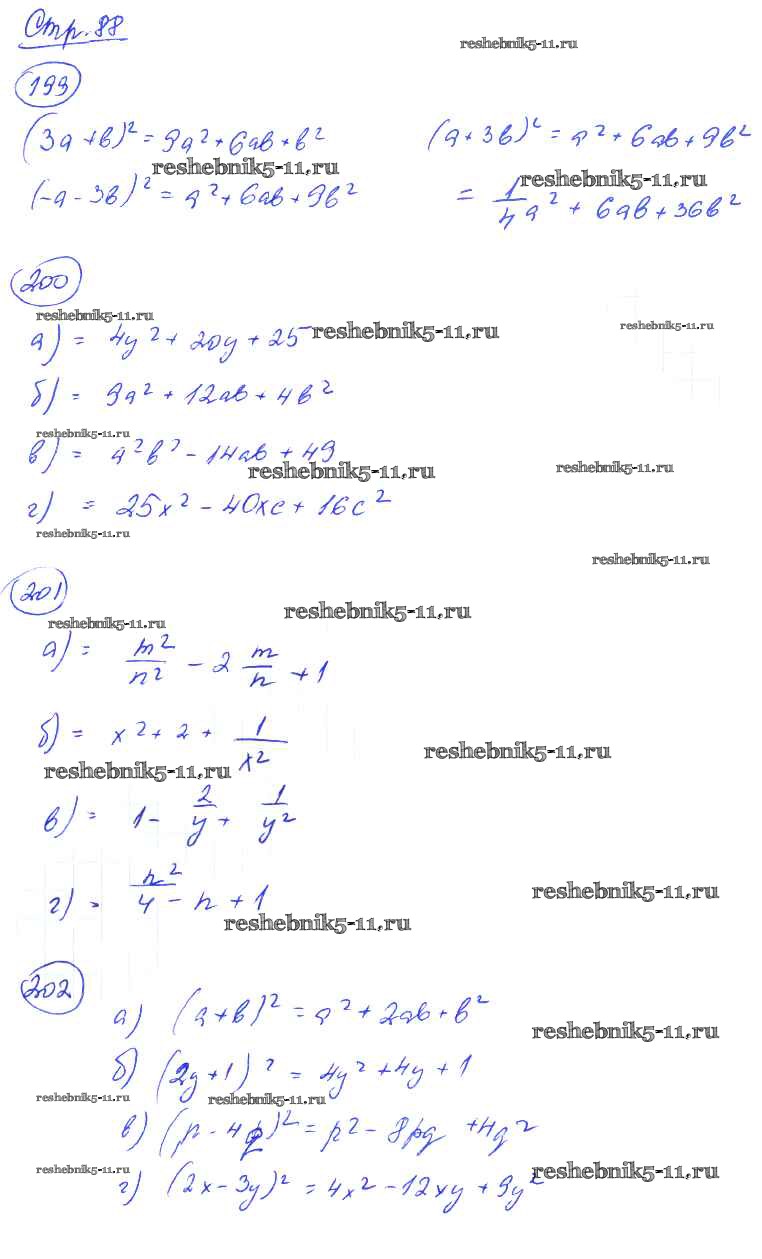 Стр. 88
reshebnik5-11.ru
199
(3a + b)² = 9a² + 6ab + b²
(a + 3b)² = a² + 6ab + 9b²
reshebnik5-11.ru
reshebnik5-11.ru
(-a - 3b)² = a² + 6ab + 9b²
= 1/4 a² + 6ab + 36b²
200
reshebnik5-11.ru
reshebnik5-11.ru
reshebnik5-11.ru
а) = 4y² + 20y + 25
б) = 9a² + 12ab + 4b²
reshebnik5-11.ru
в) = a²b² - 14ab + 49
reshebnik5-11.ru
reshebnik5-11.ru
г) = 25x² - 40xc + 16c²
reshebnik5-11.ru
reshebnik5-11.ru
201
reshebnik5-11.ru
reshebnik5-11.ru
а) = m²/n² - 2 m/n + 1
б) = x² + 2 + 1/x²
reshebnik5-11.ru
reshebnik5-11.ru
в) = 1 - 2/y + 1/y²
г) = n²/4 - n + 1
reshebnik5-11.ru
reshebnik5-11.ru
202
а) (a + b)² = a² + 2ab + b²
reshebnik5-11.ru
б) (2y + 1)² = 4y² + 4y + 1
reshebnik5-11.ru
reshebnik5-11.ru
в) (p - 4q)² = p² - 8pq + 4q²
reshebnik5-11.ru
reshebnik5-11.ru
г) (2x - 3y)² = 4x² - 12xy + 9y²